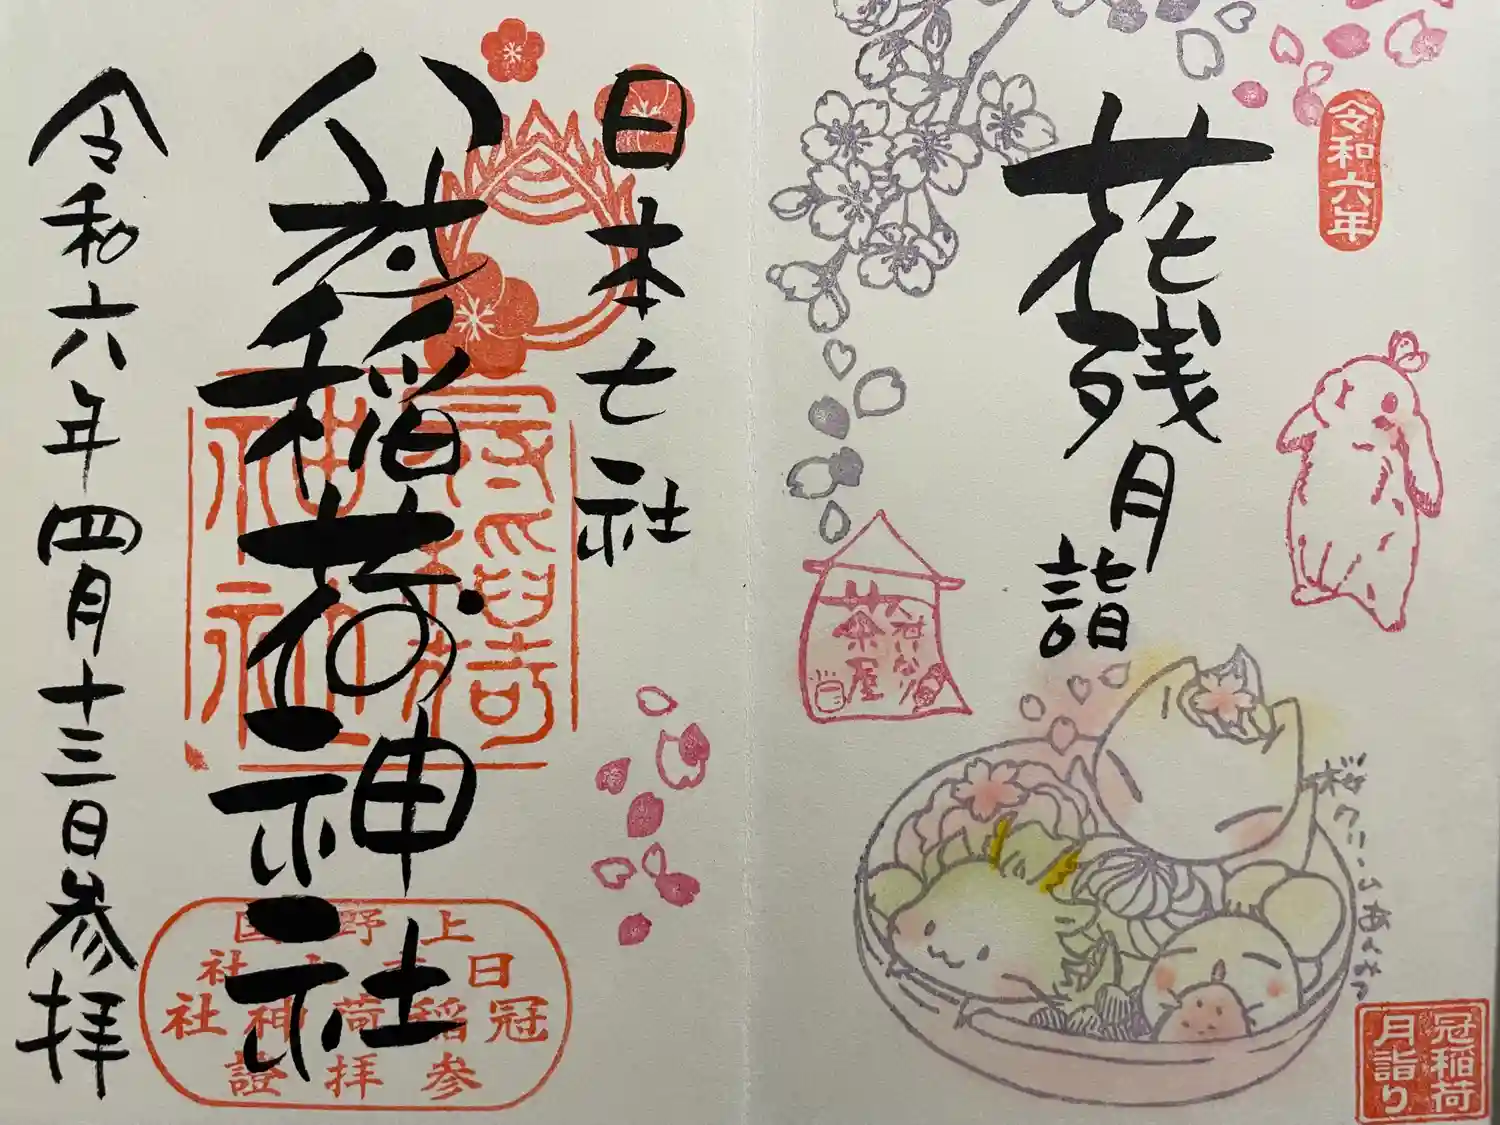 令和六年
花残月
詣
茶屋
桜クリームあんみつ
冠稲荷
月詣り
日本七社
冠稲荷神社
冠稲荷
神社
上野国
日本七社
冠稲荷神社
参拝證
令和六年四月十三日参拝